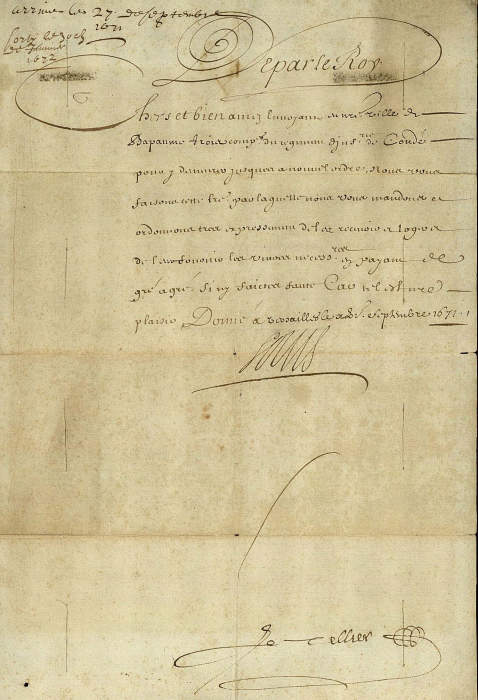 arrivée le 27 de septembre
1671
sorty le
1672
De par le Roy
Chers et bien amez Envoyant en n're ville de
Bapaume trois comp.es du regiment d'Inf.rie de Condé
pour y demeurer jusques a nouvel ordre, Nous vous
faisons cette lre. par laquelle nous vous mandons et
ordonnons tres expressement de les recevoir et loger et
de leur fournir les vivres necess.res en payant de
gré a gré. Si n'y faictes faute Car tel est n're
plaisir, Donné à Versailles le septembre 1671.
Louis
Le Tellier